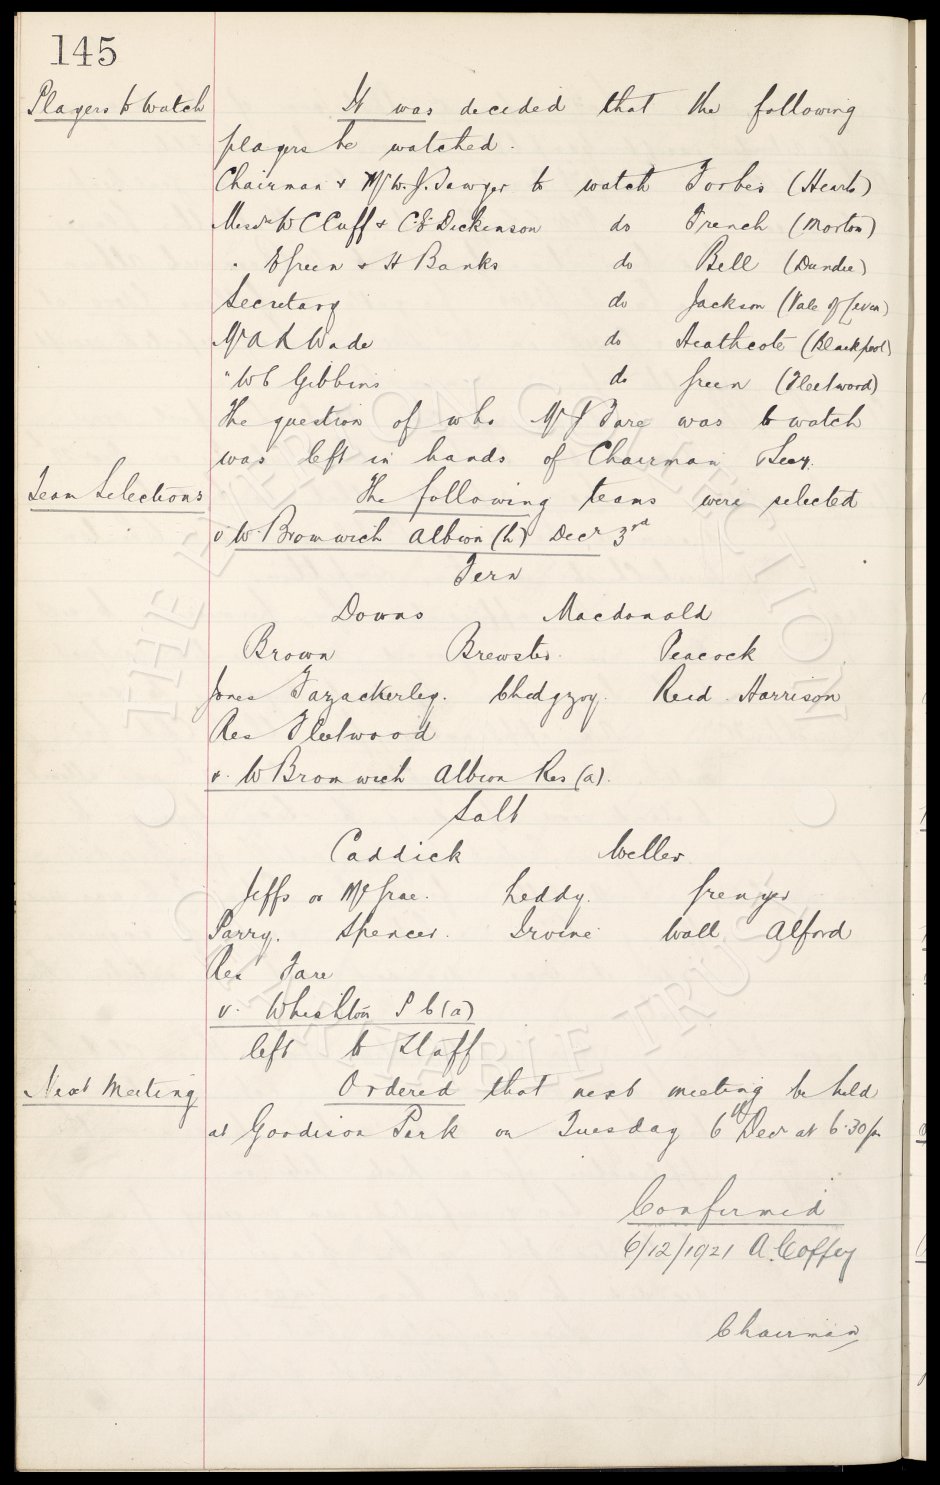 145
Players to Watch
It was decided that the following
players be watched.
Chairman & Mr W. J. Sawyer to watch Forbes (Hearts)
Messrs W C Cuff & C. E. Dickinson do French (Morton)
" E Green & H Banks do Bell (Dundee)
Secretary do Jackson (Vale of Leven)
Mr A R Wade do Heathcote (Blackpool)
" W C Gibbins do Green (Fleetwood)
The question of who Mr J Fare was to watch
was left in hands of Chairman & Secy.
Team Selections
The following teams were selected
v W. Bromwich Albion (h) Decr 3rd
Fern
Downs Macdonald
Brown Brewster. Peacock
Jones Fazackerley. Chedgzoy. Reid. Harrison
Res Fleetwood
v. W Bromwich Albion Res (a).
Salt
Caddick Weller
Jeffs or McGrae. Leddy. Grenyer
Parry. Spencer. Irvine Wall Alford
Res Fare
v. Whiston P C (a)
left to Staff
Next Meeting
Ordered that next meeting be held
at Goodison Park on Tuesday 6th Decr at 6.30 pm
Confirmed
6/12/1921 A. Coffey
Chairman
THE EVERTON COLLECTION
CHARITABLE TRUST